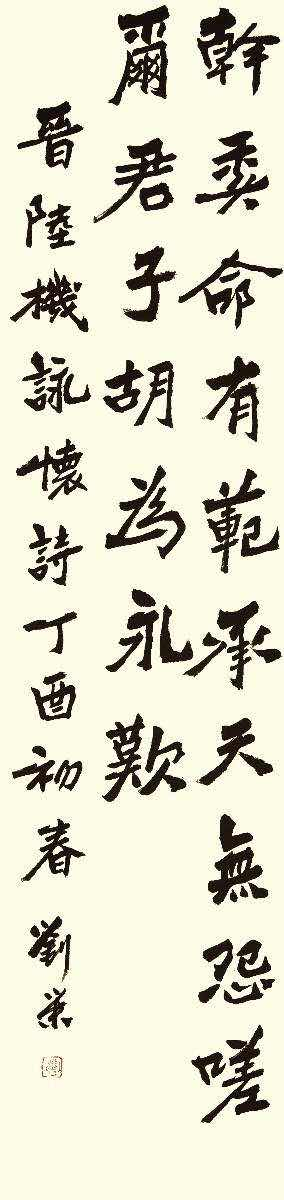 幹命有範承天無怨嗟
爾君子胡為永歎
晉陸機詠懷詩丁酉初春劉